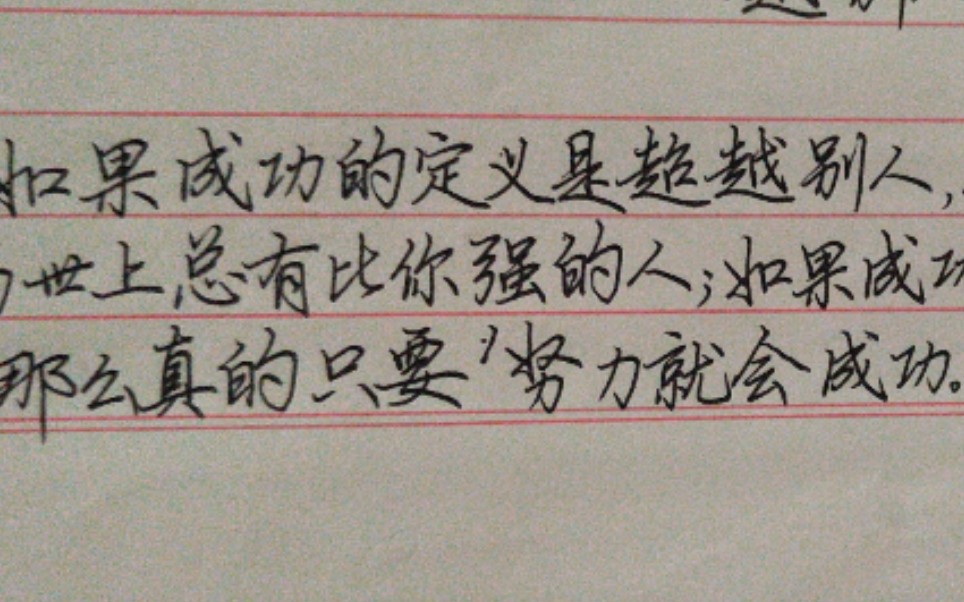 如果成功的定义是超越别人,
世上总有比你强的人;如果成功
那么真的只要努力就会成功。